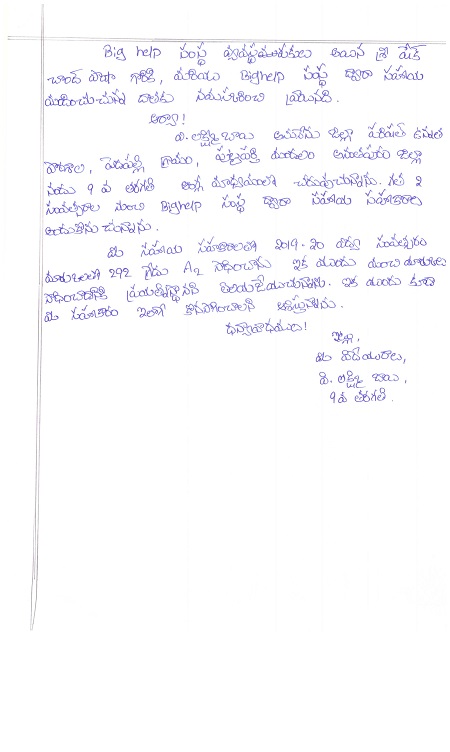 Big help సంస్థ వ్యవస్థాపకులు అయిన శ్రీ షేక్
చాంద్ పాషా గారికి, మరియు Bighelp సంస్థ ద్వారా సహాయ
మందించుచున్న దాతకు నమస్కరించి వ్రాయునది.
ఆర్యా!
వి. లక్ష్మి బాయి అనునేను జిల్లా పరిషత్ ఉన్నత
పాఠశాల, పెడపల్లి గ్రామం, పుట్టపర్తి మండలం అనంతపురం జిల్లా
నందు 9 వ తరగతి ఆంగ్ల మాధ్యమంలో చదువుచున్నాను. గత 2
సంవత్సరాల నుంచి Bighelp సంస్థ ద్వారా సహాయ సహకారాలు
అందుకొను చున్నాను.
మీ సహాయ సహకారాలతో 2019-20 విద్యా సంవత్సరం
మార్కులలో 292 గ్రేడు A2 సాధించాను ఇక ముందు మంచి మార్కులు
సాధించడానికి ప్రయత్నిస్తానని తెలియజేయుచున్నాను. ఇక ముందు కూడా
మీ సహకారం ఇలాగే కొనసాగించాలని ఆశిస్తున్నాను.
ధన్యవాదములు!
ఇట్లు,
మీ విధేయురాలు,
వి. లక్ష్మి బాయి,
9 వ తరగతి.